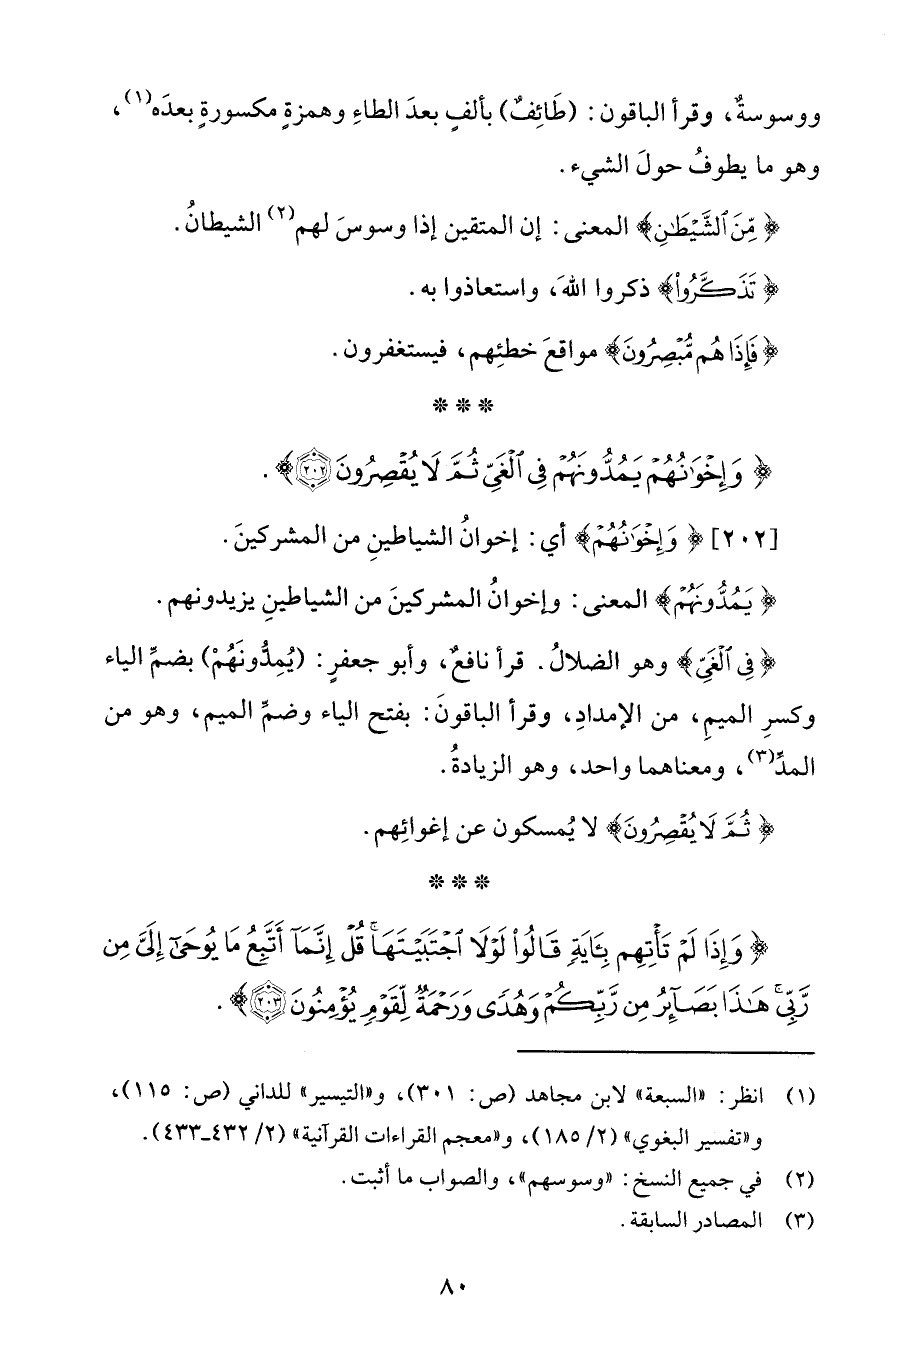 ووسوسةٌ، وقرأ الباقون: (طَائِفٌ) بألفٍ بعدَ الطاءِ وهمزةٍ مكسورةٍ بعدَه(١)،
وهو ما يطوفُ حولَ الشيء.
﴿مِّنَ ٱلشَّيْطَٰنِ﴾ المعنى: إن المتقين إذا وسوسَ لهم(٢) الشيطانُ.
﴿تَذَكَّرُوا۟﴾ ذكروا اللهَ، واستعاذوا به.
﴿فَإِذَا هُم مُّبْصِرُونَ﴾ مواقعَ خطئِهم، فيستغفرون.
* * *
﴿وَإِخْوَٰنُهُمْ يَمُدُّونَهُمْ فِى ٱلْغَىِّ ثُمَّ لَا يُقْصِرُونَ ٢٠٢﴾.
[٢٠٢] ﴿وَإِخْوَٰنُهُمْ﴾ أي: إخوانُ الشياطينِ من المشركينَ.
﴿يَمُدُّونَهُمْ﴾ المعنى: وإخوانُ المشركينَ من الشياطينِ يزيدونهم.
﴿فِى ٱلْغَىِّ﴾ وهو الضلالُ. قرأ نافعٌ، وأبو جعفرٍ: (يُمِدُّونَهُمْ) بضمِّ الياء
وكسرِ الميمِ، من الإمدادِ، وقرأ الباقونَ: بفتح الياء وضمِّ الميم، وهو من
المدِّ(٣)، ومعناهما واحد، وهو الزيادةُ.
﴿ثُمَّ لَا يُقْصِرُونَ﴾ لا يُمسكون عن إغوائِهم.
* * *
﴿وَإِذَا لَمْ تَأْتِهِم بِـَٔايَةٍ قَالُوا۟ لَوْلَا ٱجْتَبَيْتَهَا ۚ قُلْ إِنَّمَآ أَتَّبِعُ مَا يُوحَىٰٓ إِلَىَّ مِن
رَّبِّى ۚ هَٰذَا بَصَآئِرُ مِن رَّبِّكُمْ وَهُدًى وَرَحْمَةٌ لِّقَوْمٍ يُؤْمِنُونَ ٢٠٣﴾.
(١) انظر: «السبعة» لابن مجاهد (ص: ٣٠١)، و«التيسير» للداني (ص: ١١٥)،
و«تفسير البغوي» (٢/ ١٨٥)، و«معجم القراءات القرآنية» (٢/ ٤٣٢-٤٣٣).
(٢) في جميع النسخ: «وسوسهم»، والصواب ما أثبت.
(٣) المصادر السابقة.
٨٠